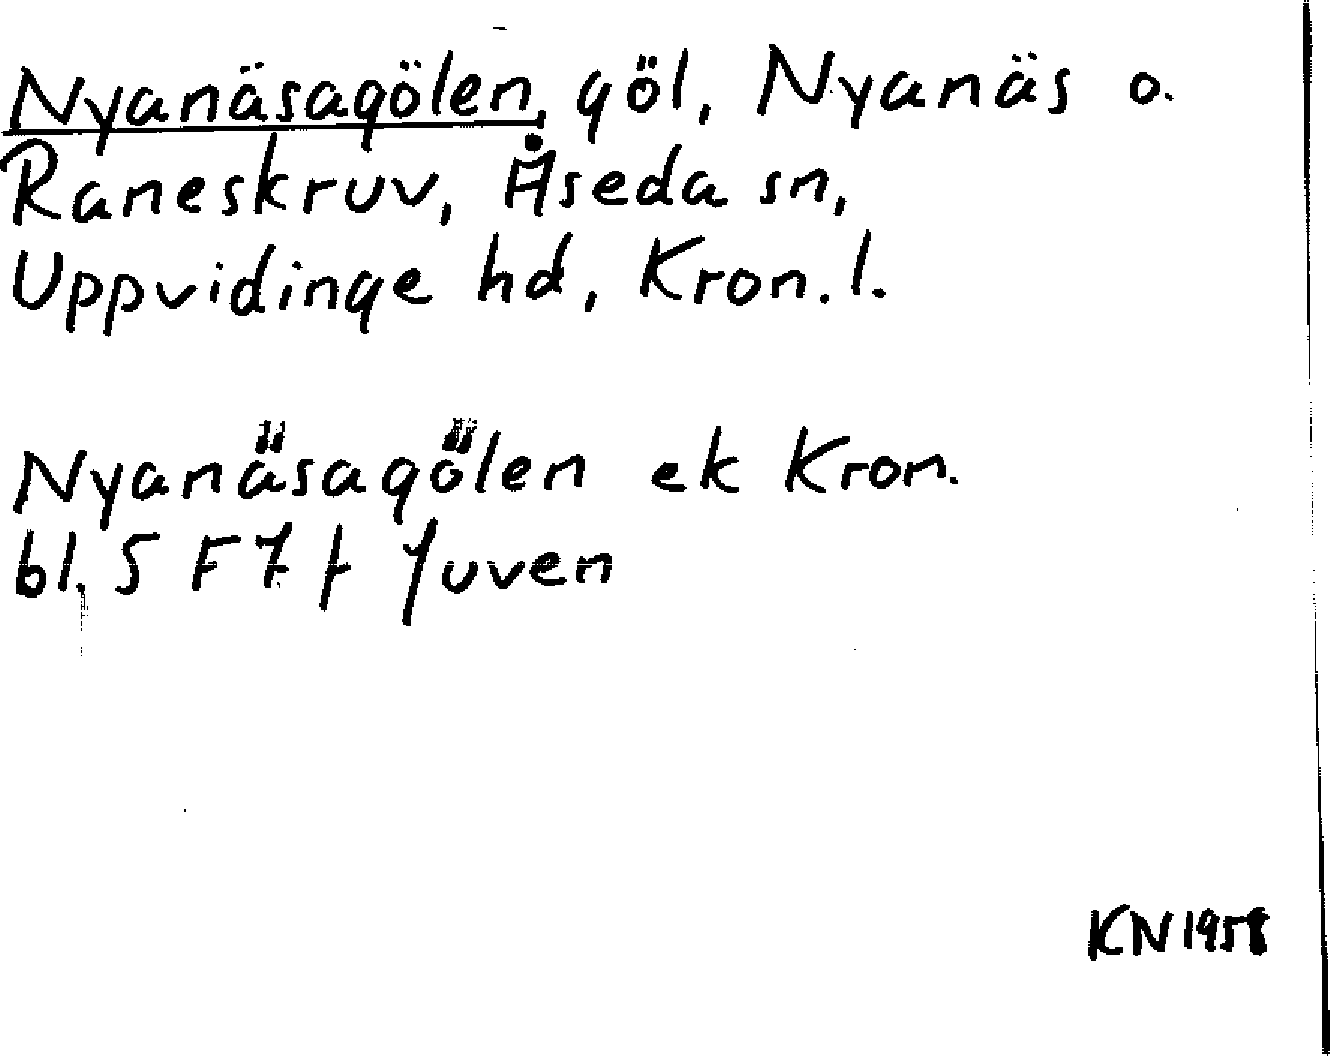 Nyanäsagölen, göl, Nyanäs o.
Raneskruv, Åseda sn,
Uppvidinge hd, Kron. l.
Nyanäsagölen ek Kron.
bl. 5 F 7 f Juven
KN 1958